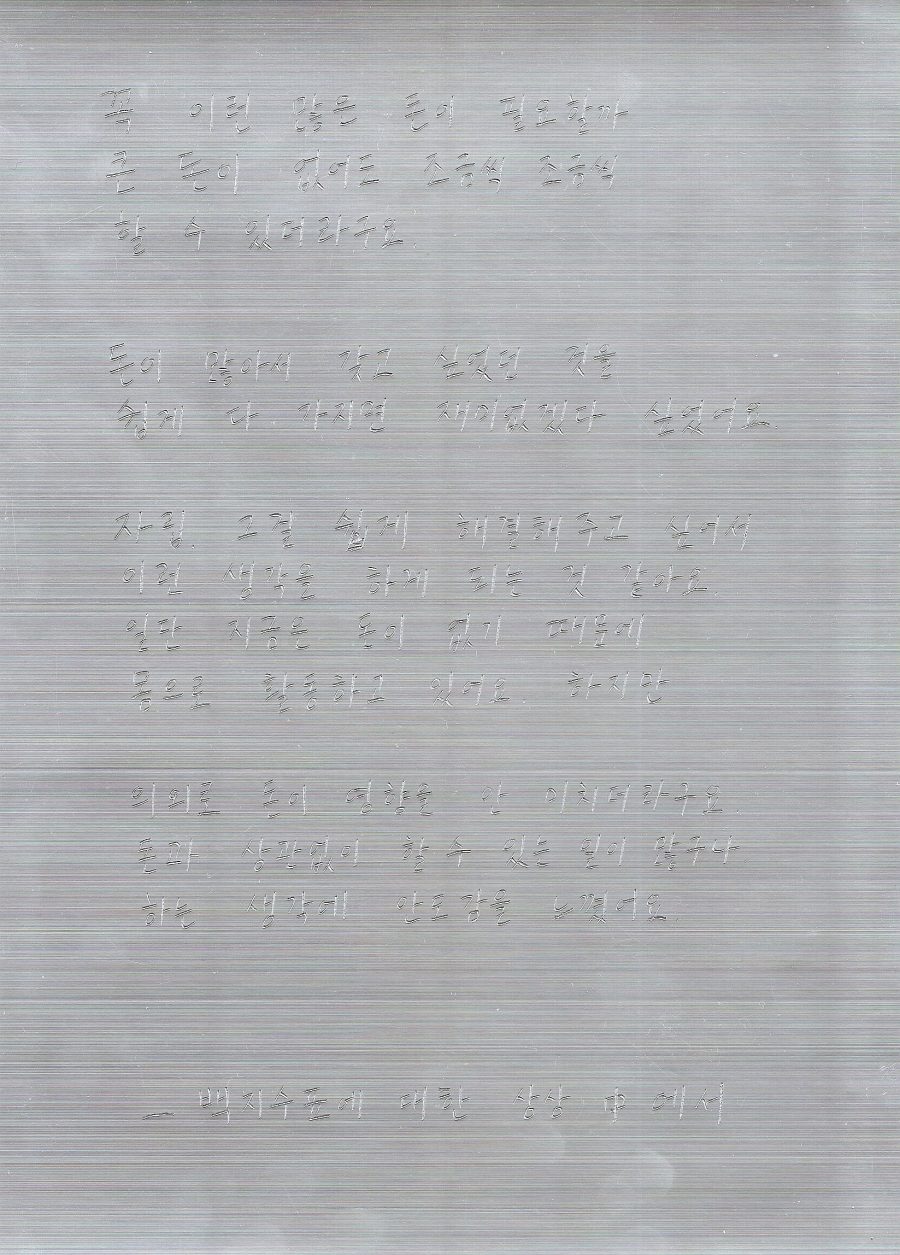 꼭 이런 많은 돈이 필요할까
큰 돈이 없어도 조금씩 조금씩
할 수 있더라구요.
돈이 많아서 갖고 싶었던 것을
쉽게 다 가지면 재미없겠다 싶었어요.
자립. 그걸 쉽게 해결해주고 싶어서
이런 생각을 하게 되는 것 같아요.
일단 지금은 돈이 없기 때문에
몸으로 활동하고 있어요. 하지만
의외로 돈이 영향을 안 미치더라구요.
돈과 상관없이 할 수 있는 일이 많구나
하는 생각에 안도감을 느꼈어요.
— 백지수표에 대한 상상 中에서